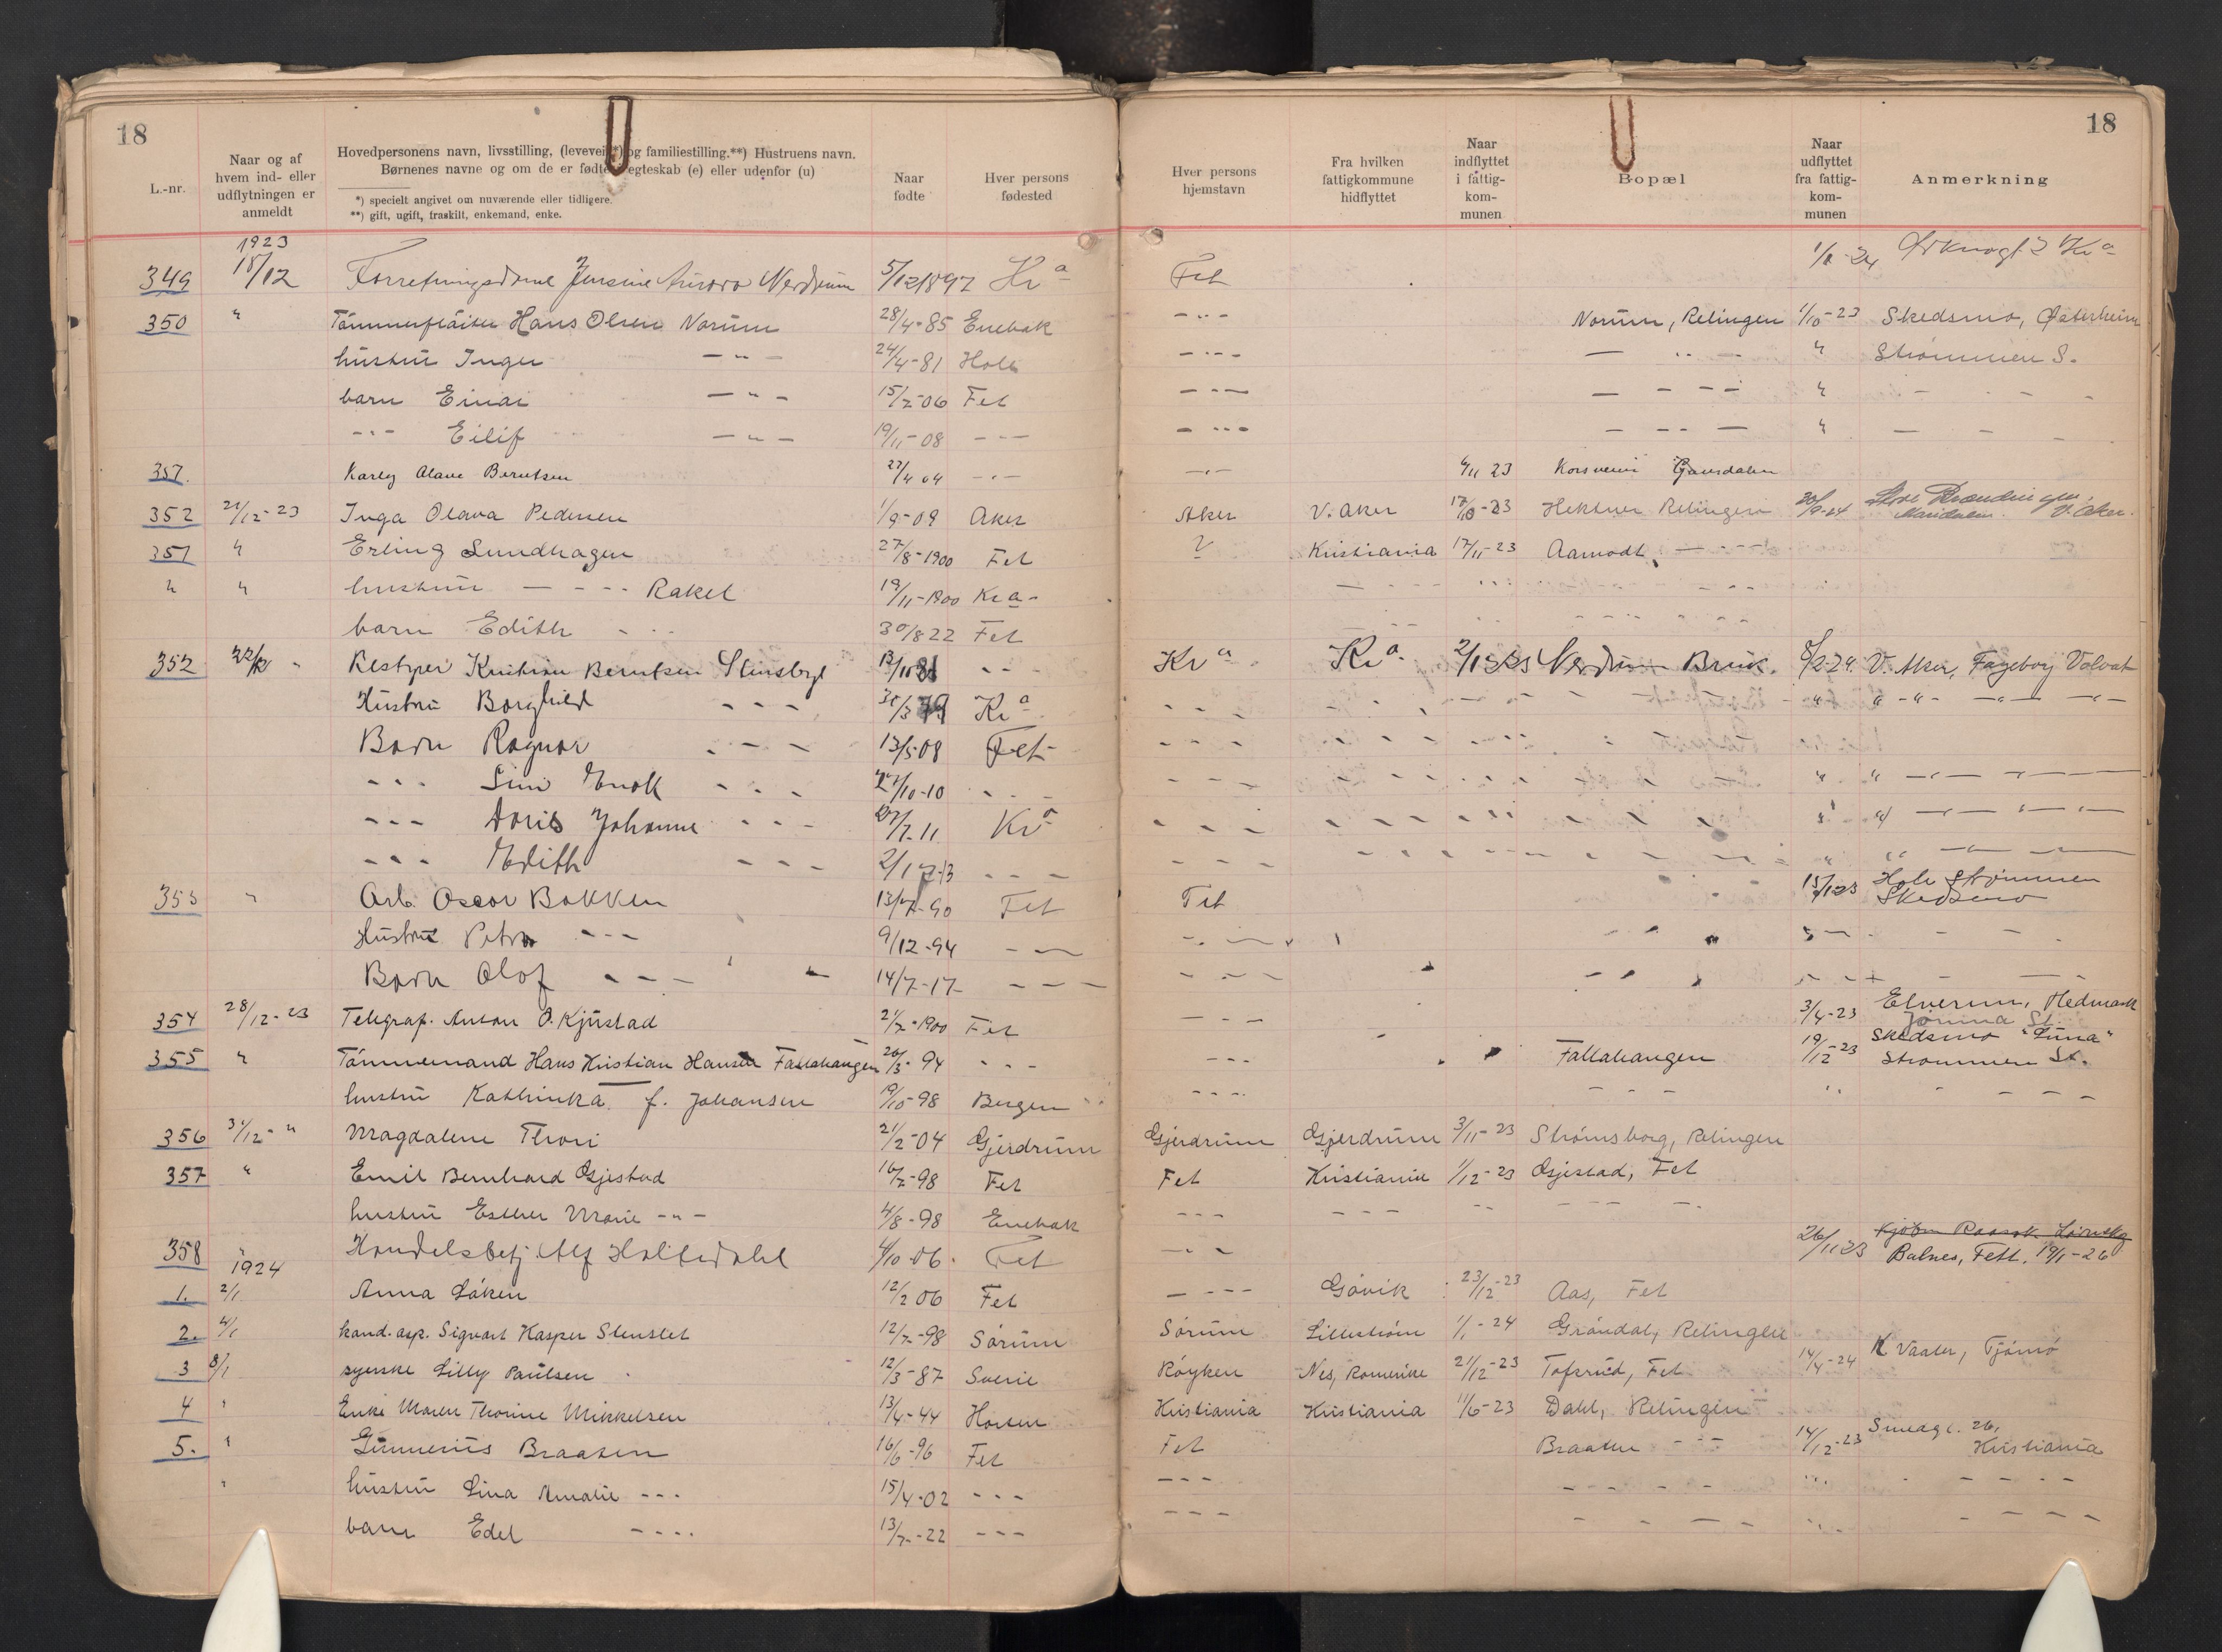 18
L.-nr.
Naar og af hvem ind- eller udflytningen er anmeldt
Hovedpersonens navn, livsstilling, (levevei *) og familiestilling.**) Hustruens navn.
Børnenes navne og om de er fødte egteskab (e) eller udenfor (u)
*) specielt angivet om nuværende eller tidligere.
**) gift, ugift, fraskilt, enkemand, enke.
Naar fødte
Hver persons fødested
Hver persons hjemstavn
Fra hvilken fattigkommune hidflyttet
Naar indflyttet i fattig-kom-munen
Bopæl
Naar udflyttet fra fattig-kom-munen
Anmerkning
18
1923
349 18/12 Forretningsdame Jensine Aurora Nerdrum 5/12 1897 Kra Fet 1/1-24 Kra
350 " Hans Olsen Norum 28/4-85 Enebak -"- Norum, Relingen 1/10-23 Skedsmo, Østerheim
hustru Inger -"- 24/4-81 Hole -"- - " - " Strømmen S.
barn Einar -"- 15/2-06 Fet -"- - - - "
-"- Eilif -"- 19/11-08 -"- -"- - - - "
351. Karly Olave Berntsen 22/4 04 -"- -"- 6/11 23 Korsveien Gansdalen
352 21/12-23 Inga Olava Pedersen 1/9-09 Aker Aker V. Aker 17/10-23 Hektner Relingen 30/9-24 Maridalen V. Aker.
351 " Erling Sundhagen 27/8-1900 Fet ? Kristiania 17/11-23 Aamodt - - -
" " hustru - - - Rakel 19/11-1900 Kra -
barn Edith - - 30/8 22 Fet
352 22/12 " Restyrer Kristian Berntsen Stensbyl 13/11 81 - - Kra Kra 2/1 23 Nerdrum Bruk 8/2-24 V. Aker, Fageborg Volvat
Hustru Borghild - - - 31/3 79 Kra - - -
Barn Ragnar - - - 13/5-08 Fet - - -
- - - Enok - - - 27/10-10 - - -
- - - Doris Johanne - - - 27/7-11 Kra - - -
- - - Edith - - - 2/1 - - -
353 " Arb. Oscar Bakken 13/7-90 Fet Fet 15/1 23 Hole Strømmen
Skedsmo
Hustru Petra - - - 9/12-94 - -
Barn Olof - - - 14/7-17 - - -
354 28/12-23 Telegraf. Anton O. Kjustad 21/2-1900 Fet - - - 3/4-23 Elverum, Hedmark
355 " Tømmermand Hans Kristian Hansen Fallahaugen 26/3-94 - - - - - - Fallahaugen 19/12-23 Skedsmo "Luna"
Strømmen St.
hustru Kathinka f. Johansen 19/10-98 Bergen - - - - - -
356 31/12-" Magdalene Thori 21/2-04 Gjerdrum Gjerdrum Gjerdrum 3/11-23 Strømsborg, Relingen
357 " Emil Bernhard Gjestad 16/2-98 Fet Fet Kristiania 1/12-23 Gjestad, Fet
hustru Esther Marie -"- 4/8-98 Enebak - - - - - - - - - - -
358 " Handelsbetj. Alf Holtedahl 4/10-06. Fet - " - 26/11 23 Kjøbm Raasok Lørenskog
Balnes, Fett. 19/1-26
1924
1. 2/1 Anna Løken 12/2 06 Fet - - - Gjøvik 23/12-23 Aas, Fet
2. 4/1 kand. asp. Sigvart Kasper Stenslet 12/7-98 Sørum Sørum Lillestrøm 1/1-24 Grøndal, Relingen
3 8/1 syerske Lilly Paulsen 12/3-87 Sverie Røyken Nes, Romerike 21/12-23 Tofsrud, Fet 14/4-24 K Vaaler, Tjømø
4 " Enke Maren Thorine Mikkelsen 13/4-44 Horten Kristiania Kristiania 11/6-23 Dahl, Relingen
5. " Gunnerius Braaten 16/6-96 Fet Fet Braaten - - - 14/12-23 Smedg. 26,
Kristiania
" hustru Lina Amalie - - - 15/4-02 - - - - - -
barn Edel - - - - 13/7-22 - - - - - -